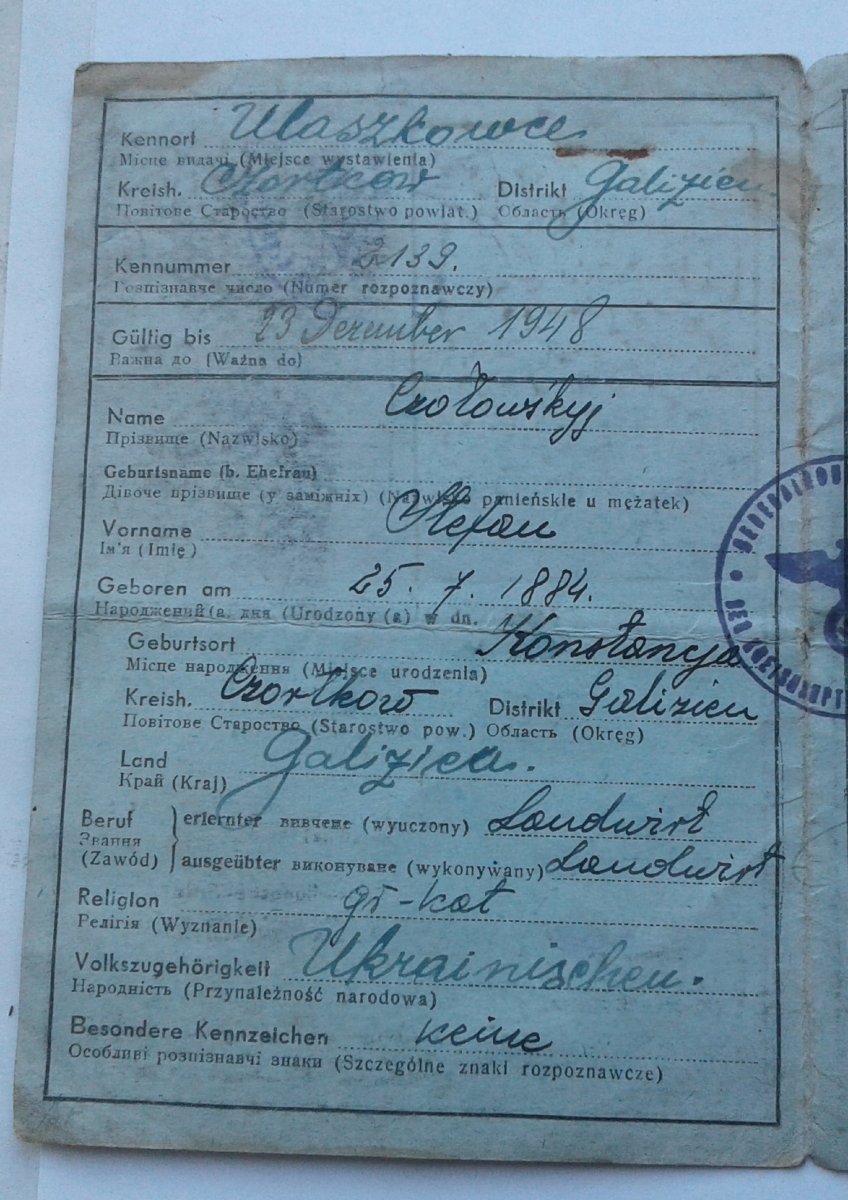 Kennort Ulaszkowce
Місце видачі (Miejsce wystawienia)
Kreish. Czortków Distrikt Galizien
Повітове Староство (Starostwo powiat.) Область (Okręg)
Kennummer 2139.
Розпізнавче число (Numer rozpoznawczy)
Gültig bis 23 Dezember 1948
Важна до (Ważna do)
Name Czołowśkyj
Прізвище (Nazwisko)
Geburtsname (b. Ehefrau)
Дівоче прізвище (у заміжніх) (Nazwisko panieńskie u mężatek)
Vorname Stefan
Ім'я (Imię)
Geboren am 25. 7. 1884.
Народжений (а, дня (Urodzony (a) w dn.
Geburtsort Konstancja
Місце народження (Miejsce urodzenia)
Kreish. Czortków Distrikt Galizien
Повітове Староство (Starostwo pow.) Область (Okręg)
Land Galizien.
Край (Kraj)
Beruf erlernter вивчене (wyuczony) Landwirt
Звання
(Zawód) ausgeübter виконуване (wykonywany) Landwirt
Religion gr-kat
Релігія (Wyznanie)
Volkszugehörigkeit Ukrainischen.
Народність (Przynależność narodowa)
Besondere Kennzeichen keine
Особливі розпізнавчі знаки (Szczególne znaki rozpoznawcze)